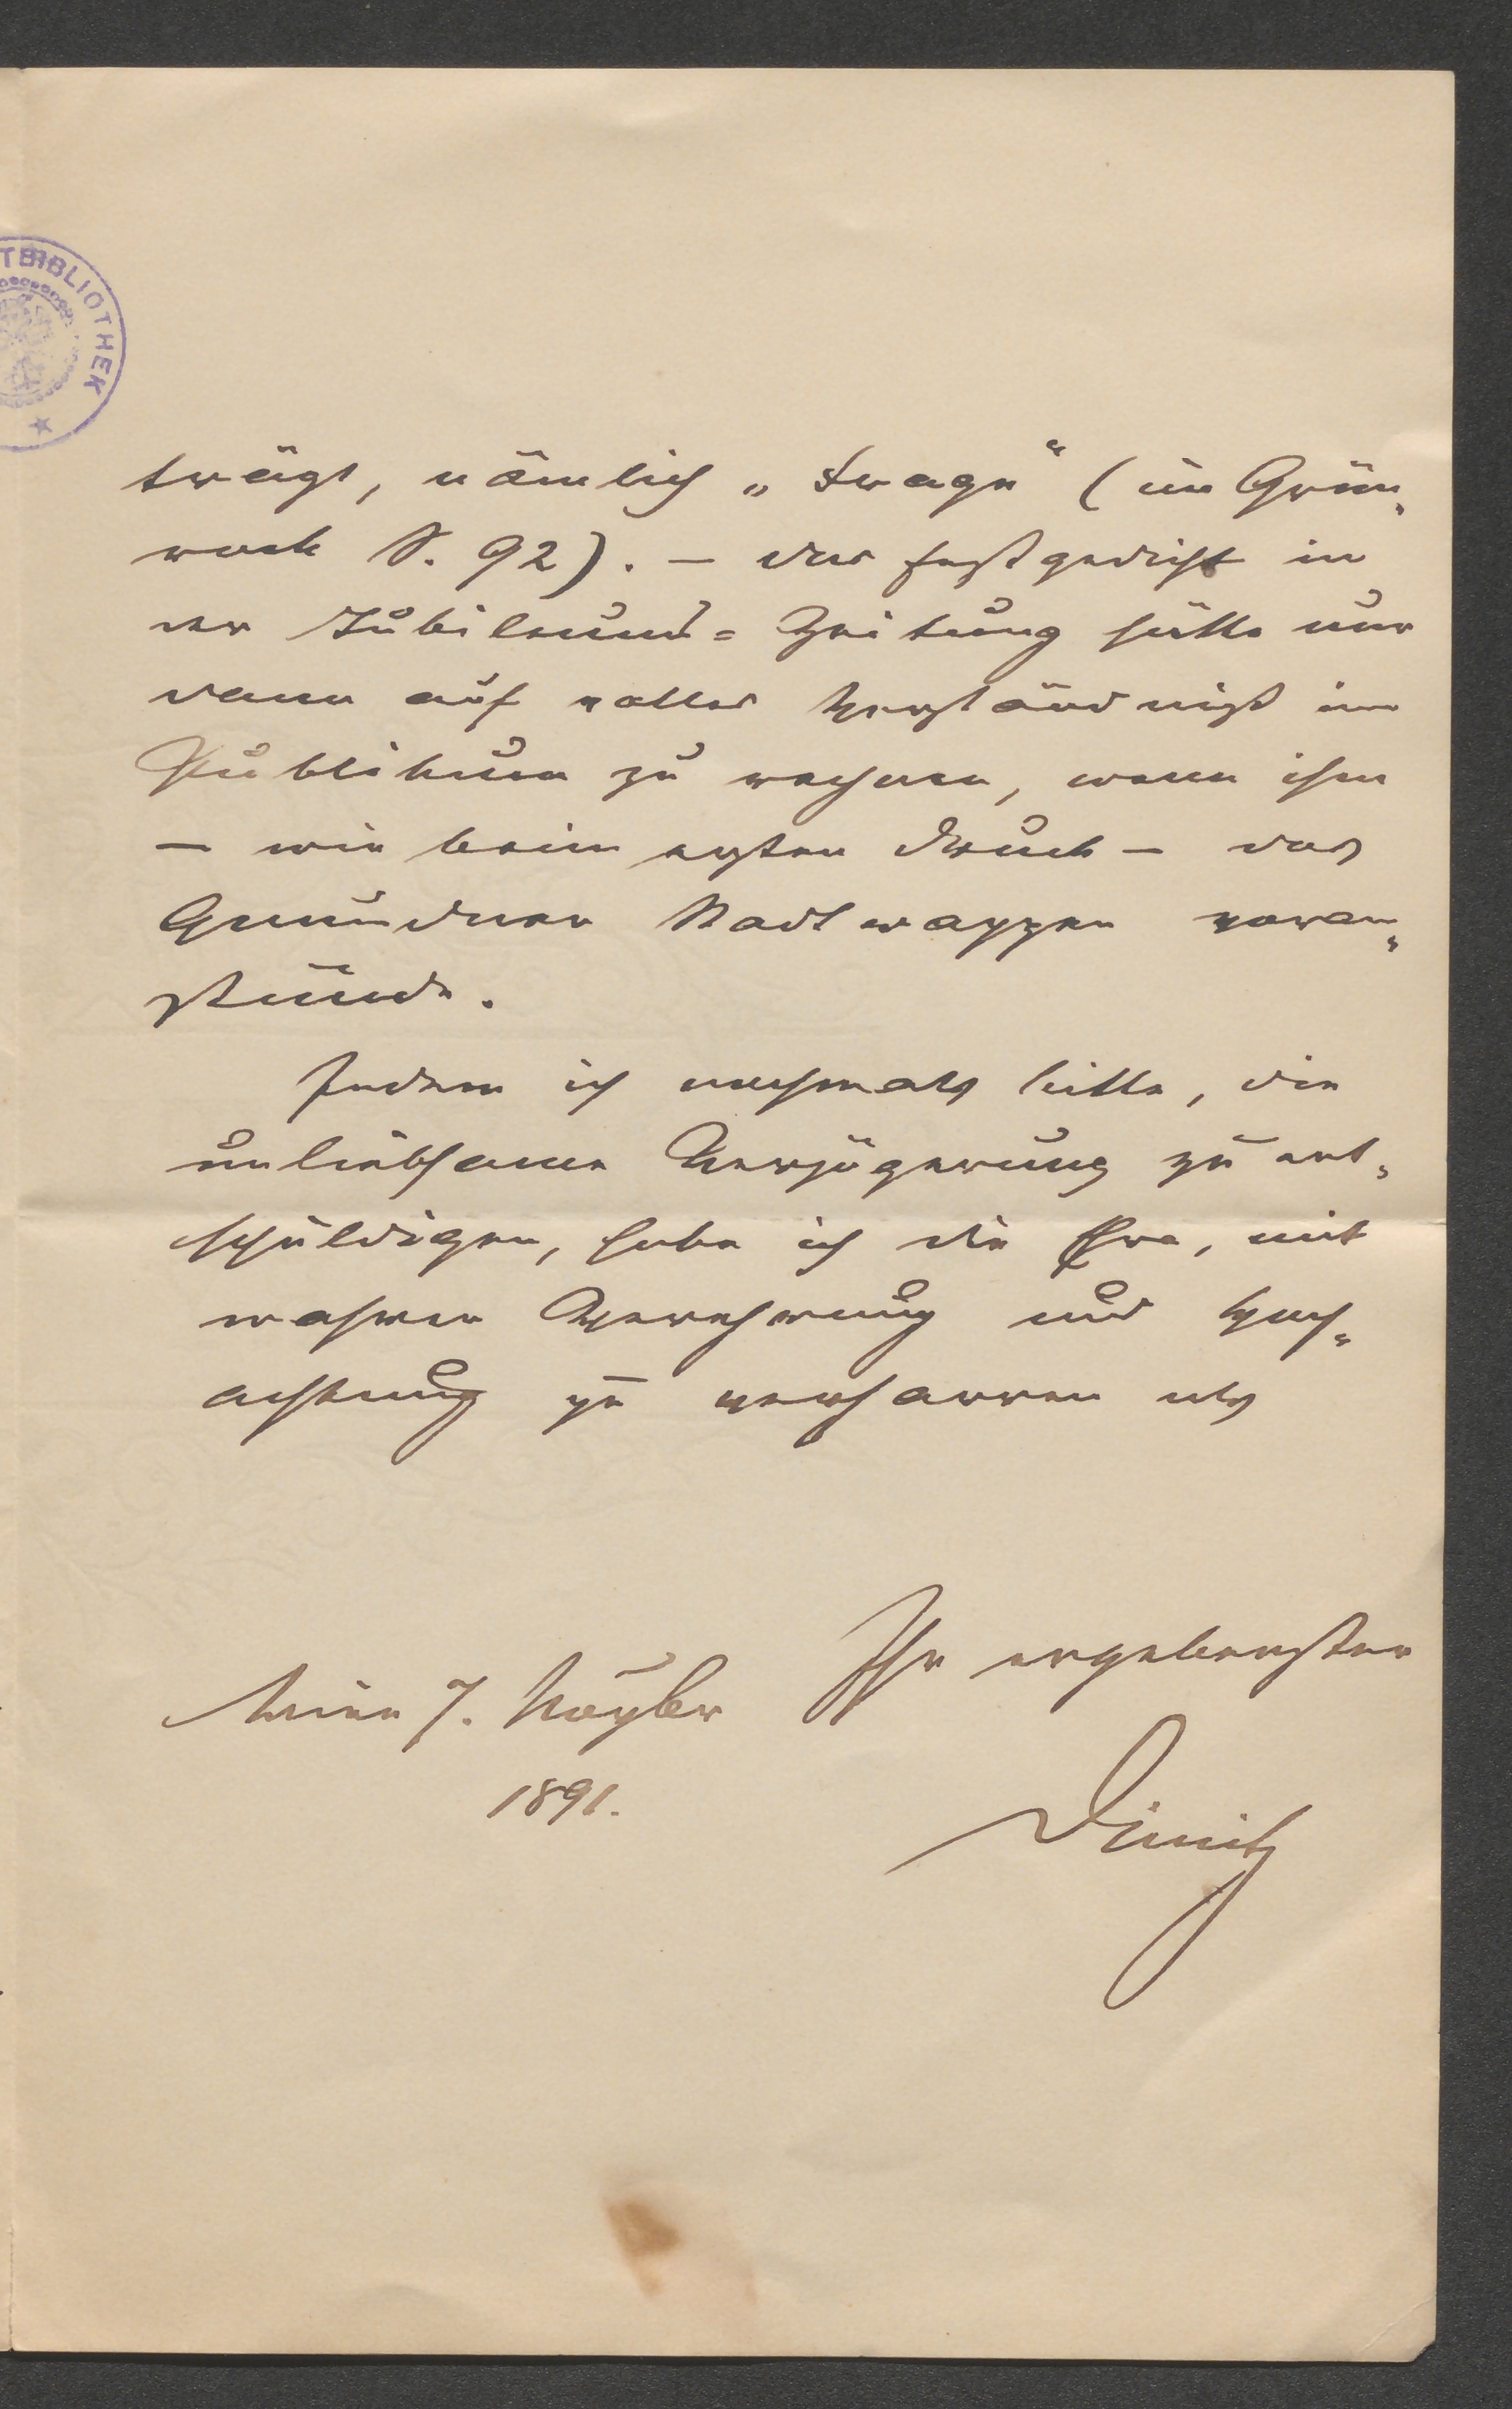 TBIBLIOTHEK
trägt, nämlich „Frage“ (im Grün„
werk S. 92). – Das Festgedicht in
der Jubiläums=Zeitung hätte nur
dann auf volles Verständniß im
Publikum zu rechnen, wenn ihm
– wie beim ersten Druck – das
Gmundner Stadtwappen voran„
stünde.
Indem ich nochmals bitte, die
unliebsame Verzögerung zu ent„
schuldigen, habe ich die Ehre, mit
wahrer Verehrung und Hoch„
achtung zu verharren als
Ihr ergebenster
Wien 7. Novbr
1891.
Dimitz